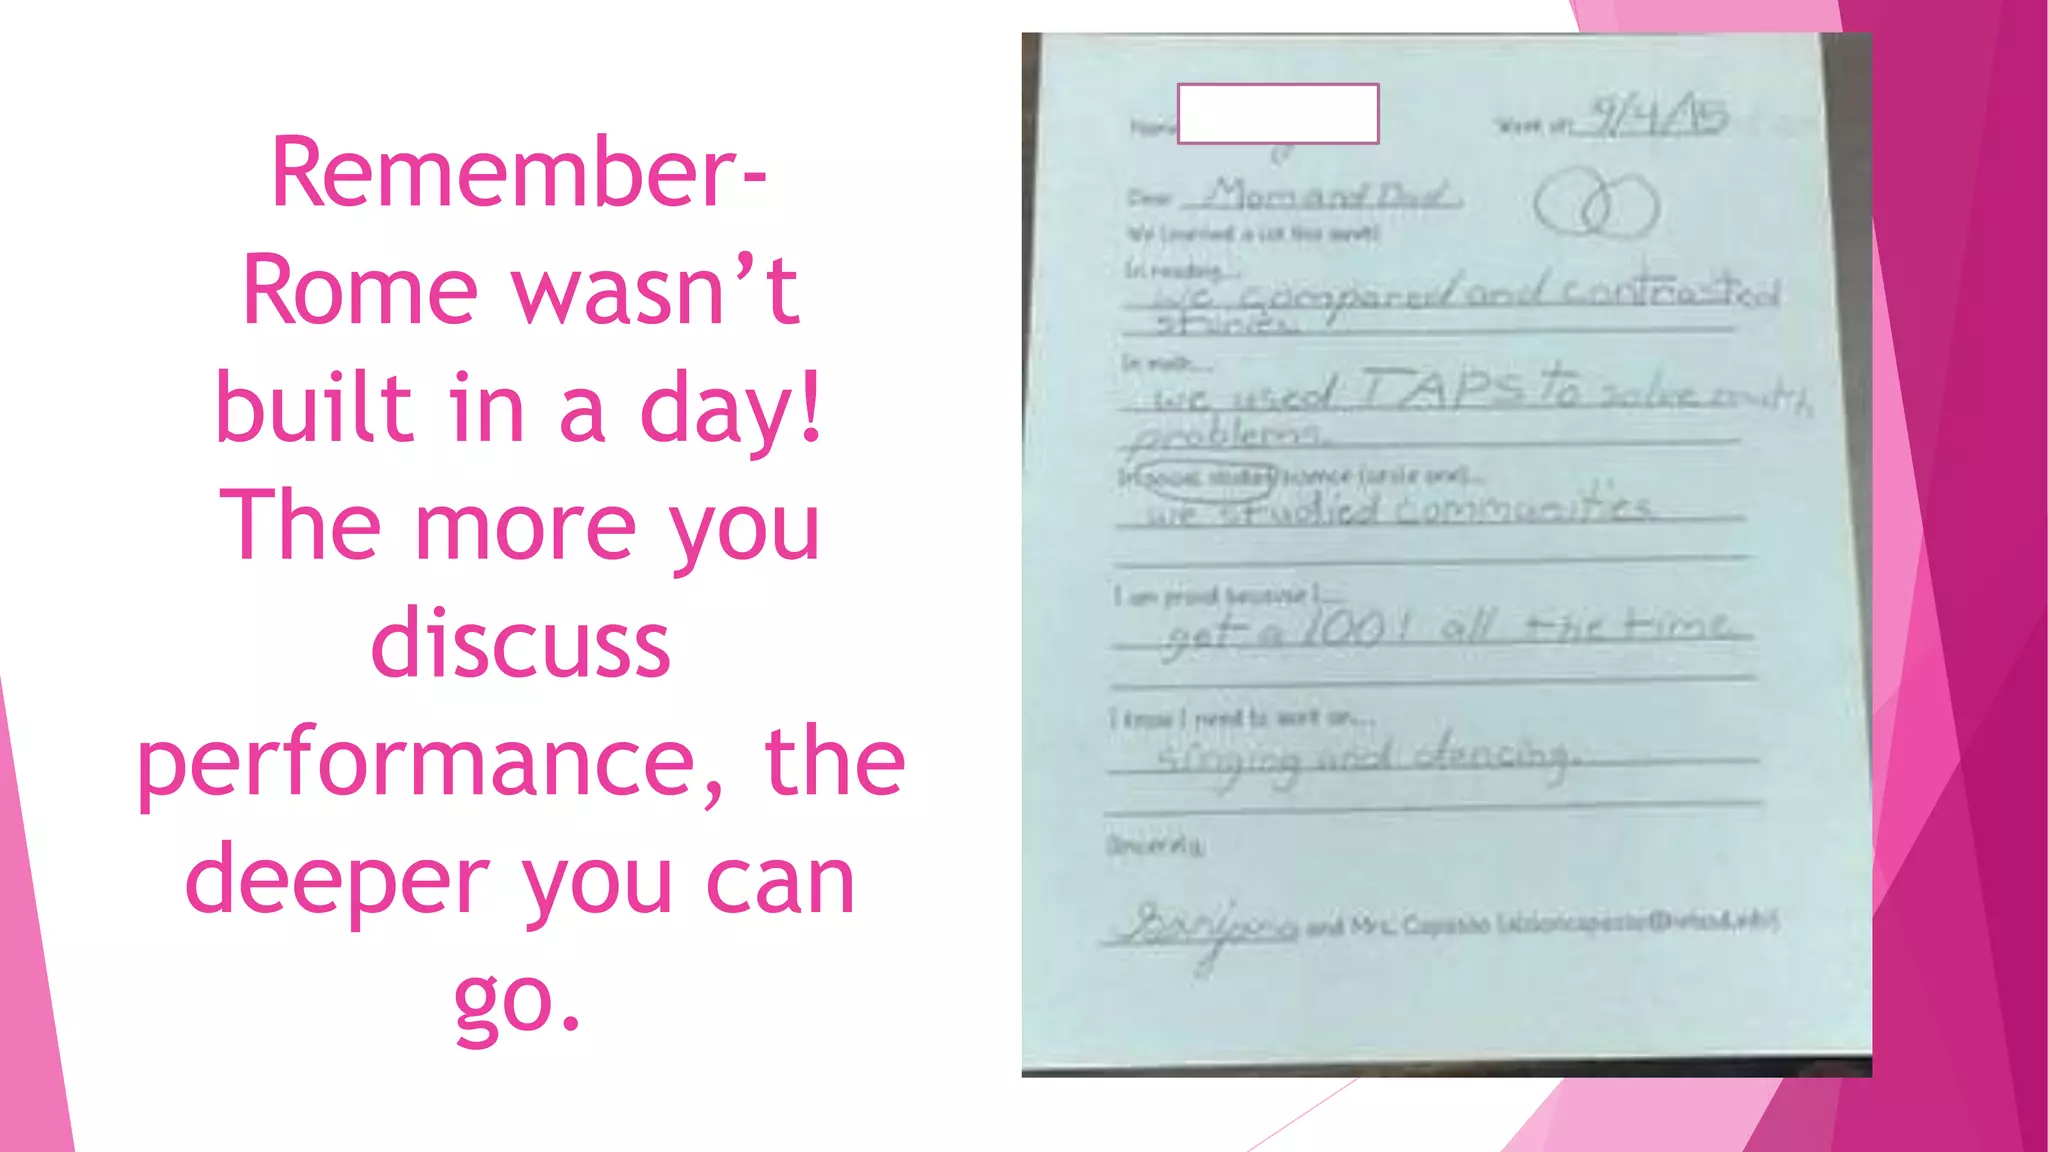 Remember-
Rome wasn’t
built in a day!
The more you
discuss
performance, the
deeper you can
go.
Name
Week of: 9/4/15
Dear Mom and Dad,
We learned a lot this week!
In reading...
we compared and contrasted
stories.
In math...
we used TAPS to solve math
problems.
In social studies/science (circle one)...
we studied communities
I am proud because I...
get a 100! all the time
I know I need to work on...
singing and dancing.
Sincerely,
and Mrs. Capasso